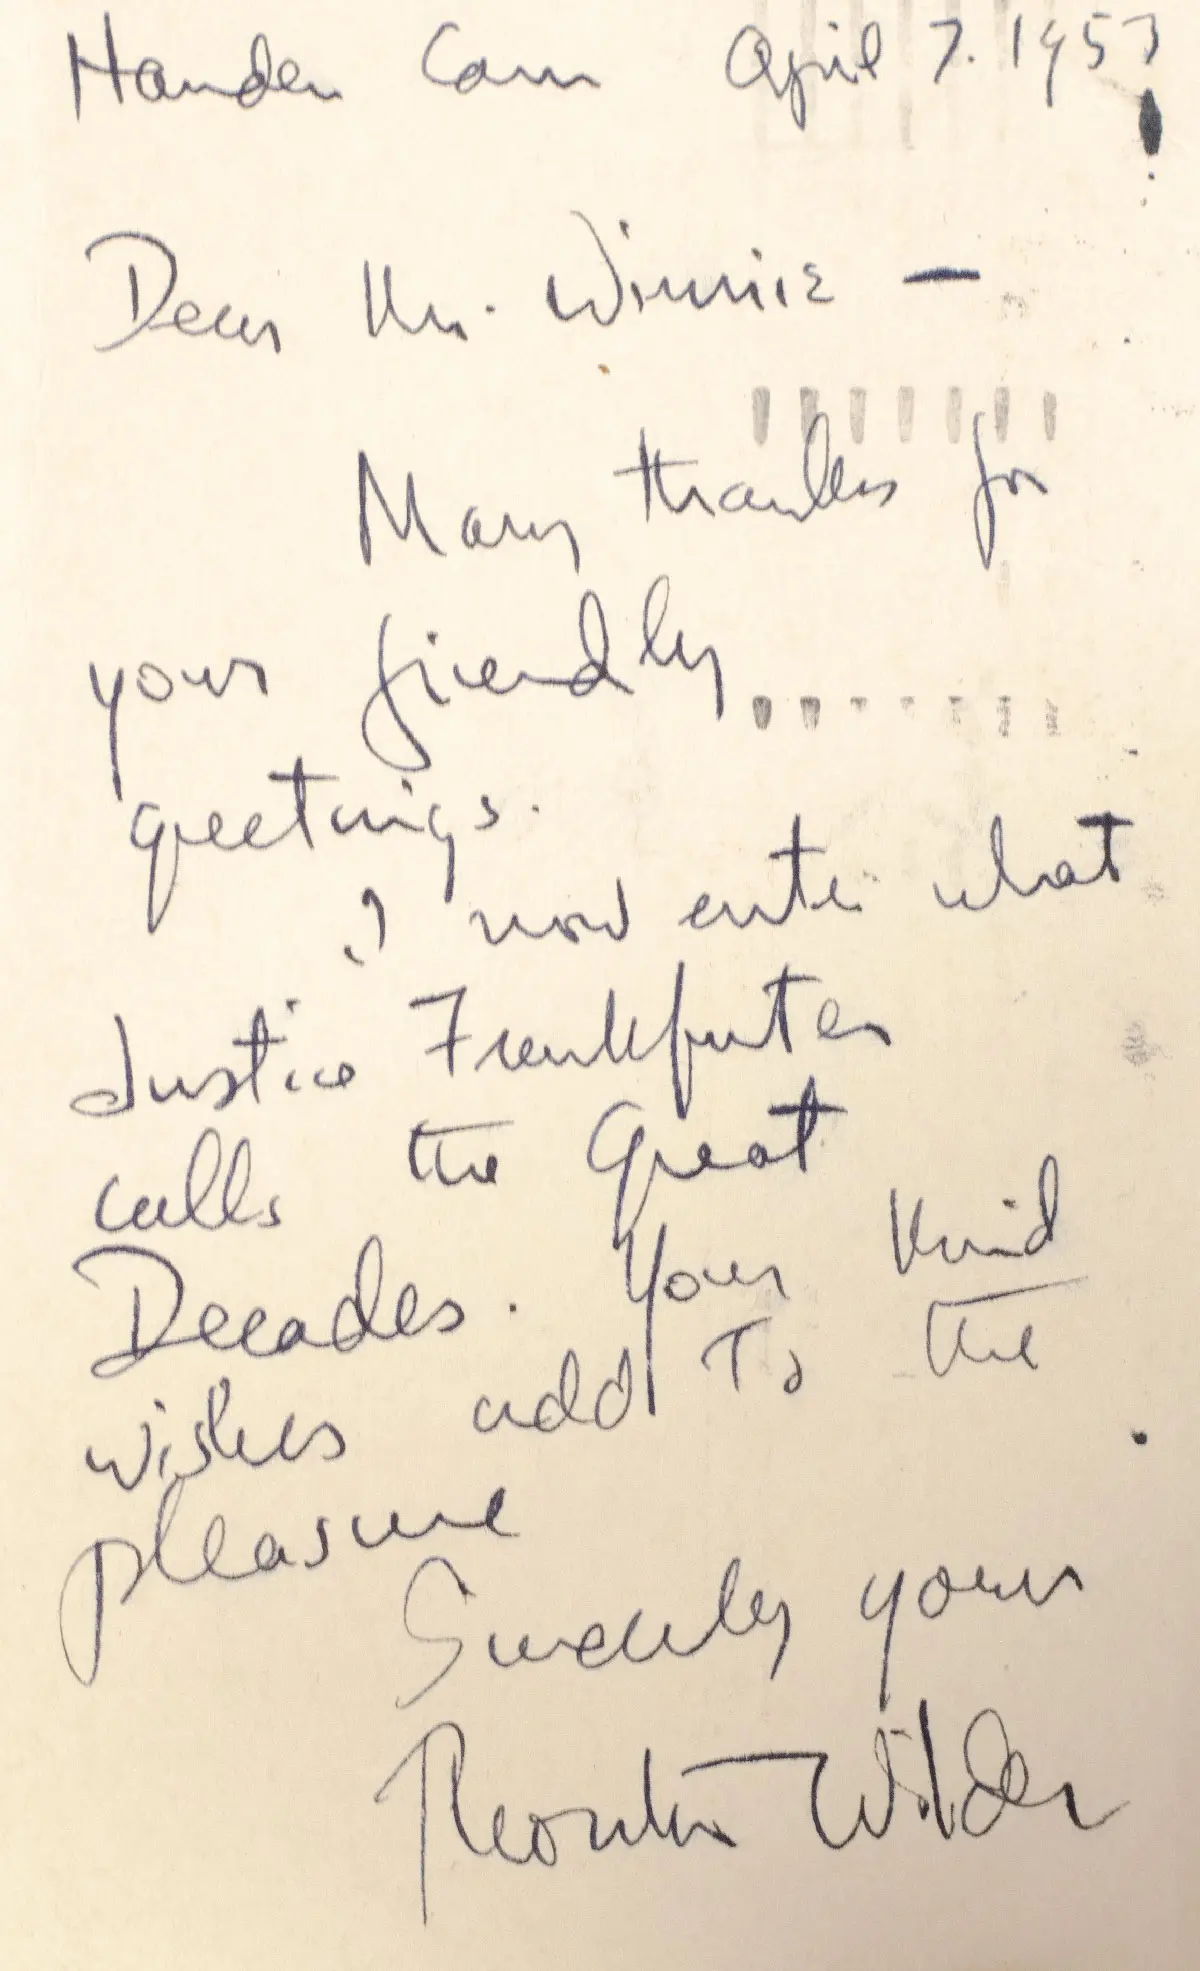 Hamden Conn April 7. 1957
Dear Mr. Winnie —
Many thanks for
your friendly
greetings.
I now enter what
Justice Frankfurter
calls the Great
Decades. Your kind
wishes add to the
pleasure
Sincerely yours
Thornton Wilder